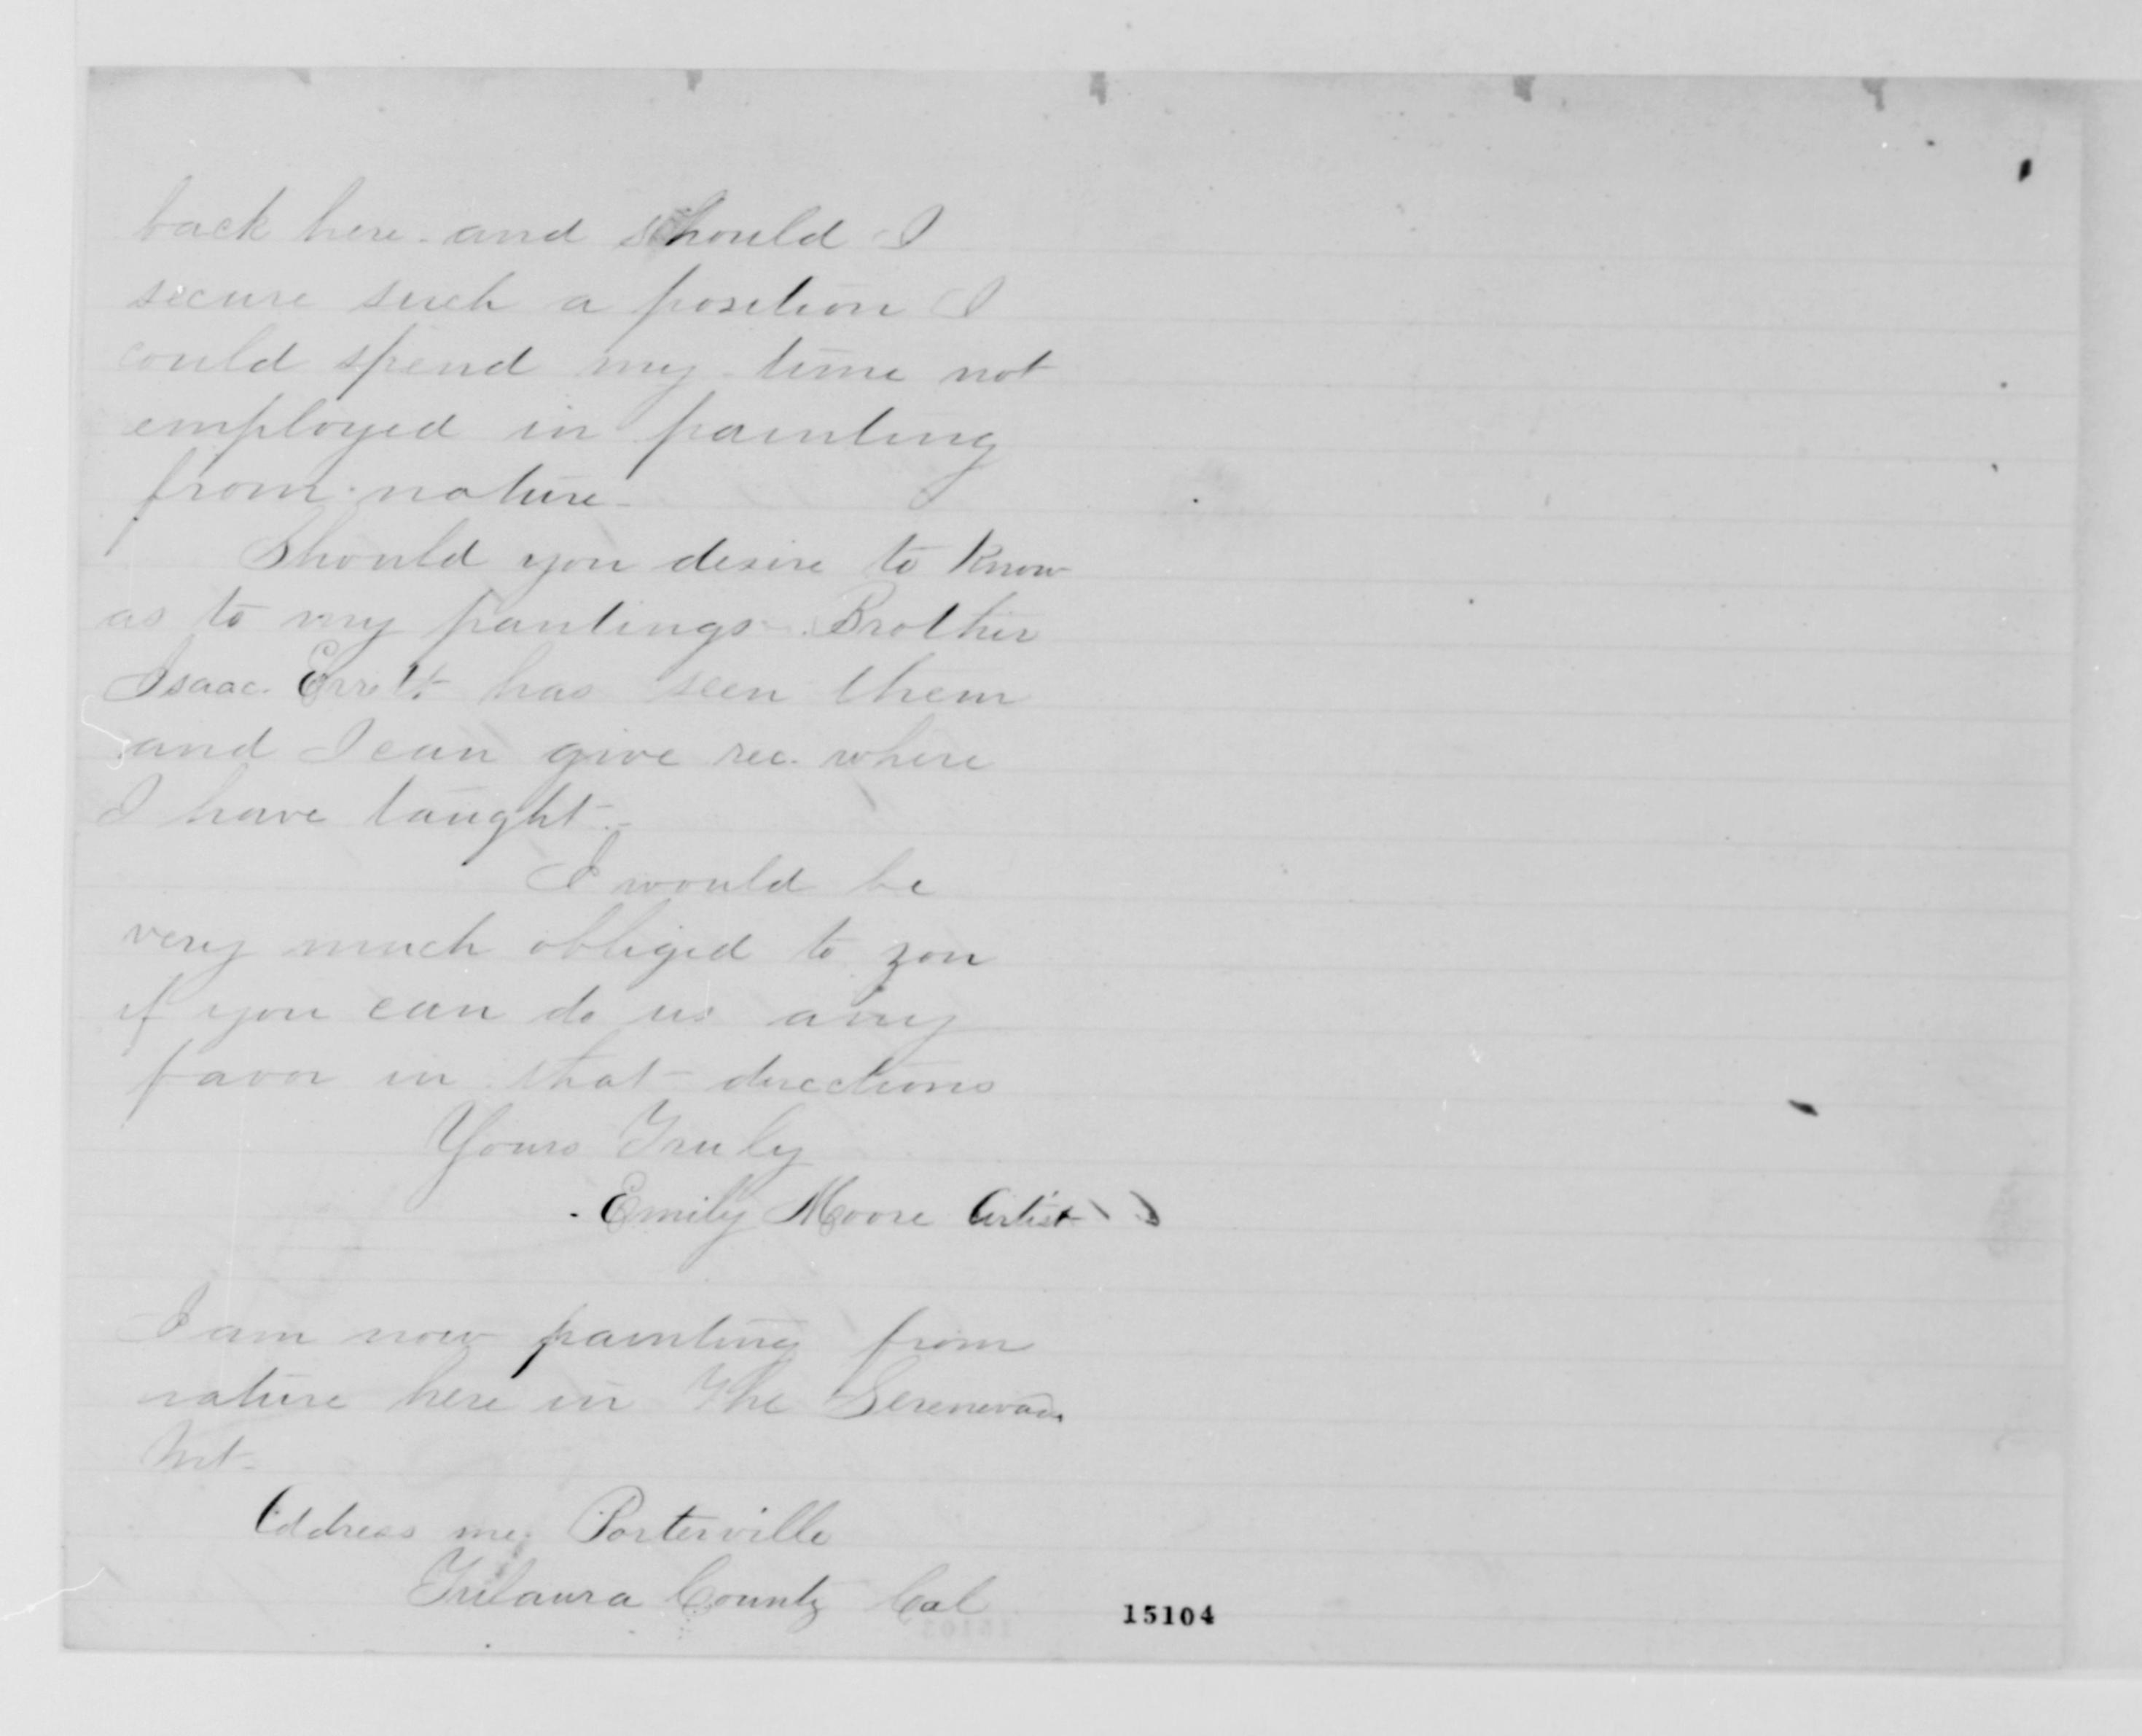 back here. and should I
secure such a position I
could spend my time not
employed in painting
from nature
Should you desire to know
as to my pantings. Brother
Isaac. Errett has seen them
and I can give rec. where
I have taught.
I would be
very much obliged to you
if you can do us any
favor in that directions
Yours Truly
Emily Moore Artist
I am now painting from
nature here in The
Mt.
Address me. Porterville
Tulaura County Cal
15104